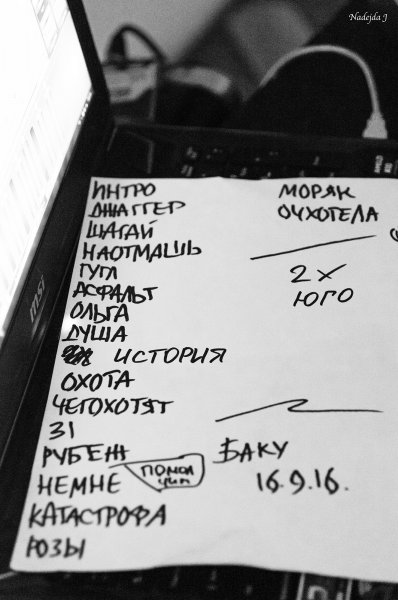 Nadejda J
ИНТРО
ДЖАГГЕР
ШАГАЙ
НАОТМАШЬ
ГУГЛ
АСФАЛЬТ
ОЛЬГА
ДУША
ИСТОРИЯ
ОХОТА
ЧЕГОХОТЯТ
31
РУБЕЖ
НЕМНЕ
ПОМОЛ
ЧИМ
КАТАСТРОФА
РОЗЫ
МОРЯК
ОЧХОТЕЛА
2 X
ЮГО
БАКУ
16.9.16.
msi